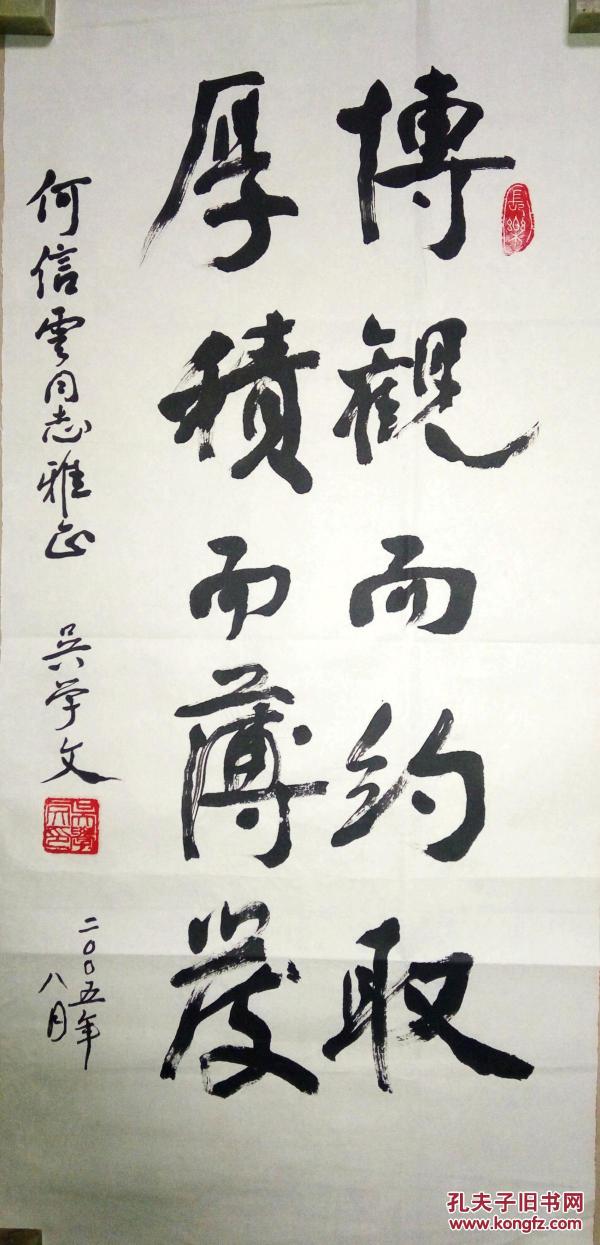 博觀而约取
厚積而薄发
長樂
何信雲同志雅正
吴学文
二00五年
八月
孔夫子旧书网
www.kongfz.com